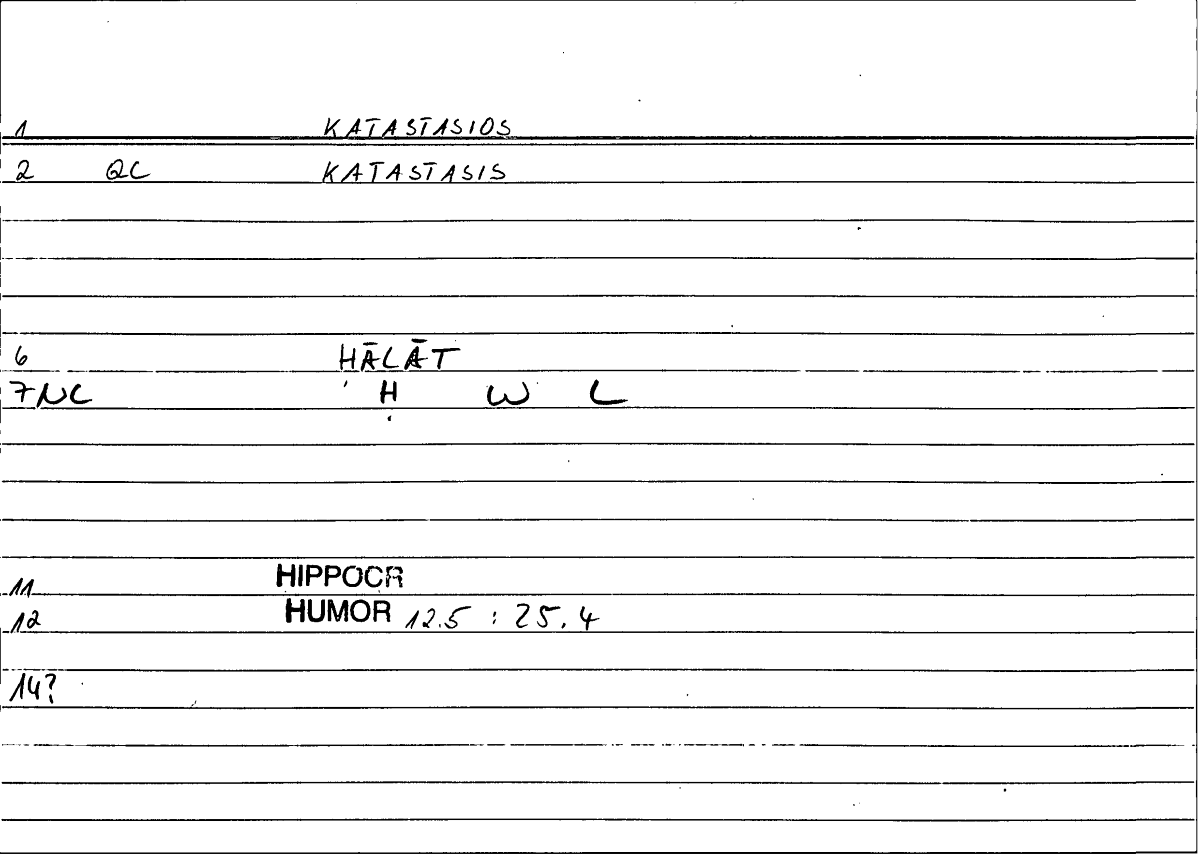 1 KATASTASIOS
2 QC KATASTASIS
6 ḤĀLĀT
7NC Ḥ W L
11 HIPPOCR
12 HUMOR 12.5 : 25.4
14?